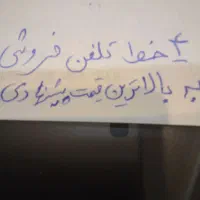 ۴ خط تلفن فروشی
به بالاترین قیمت پیشنهادی